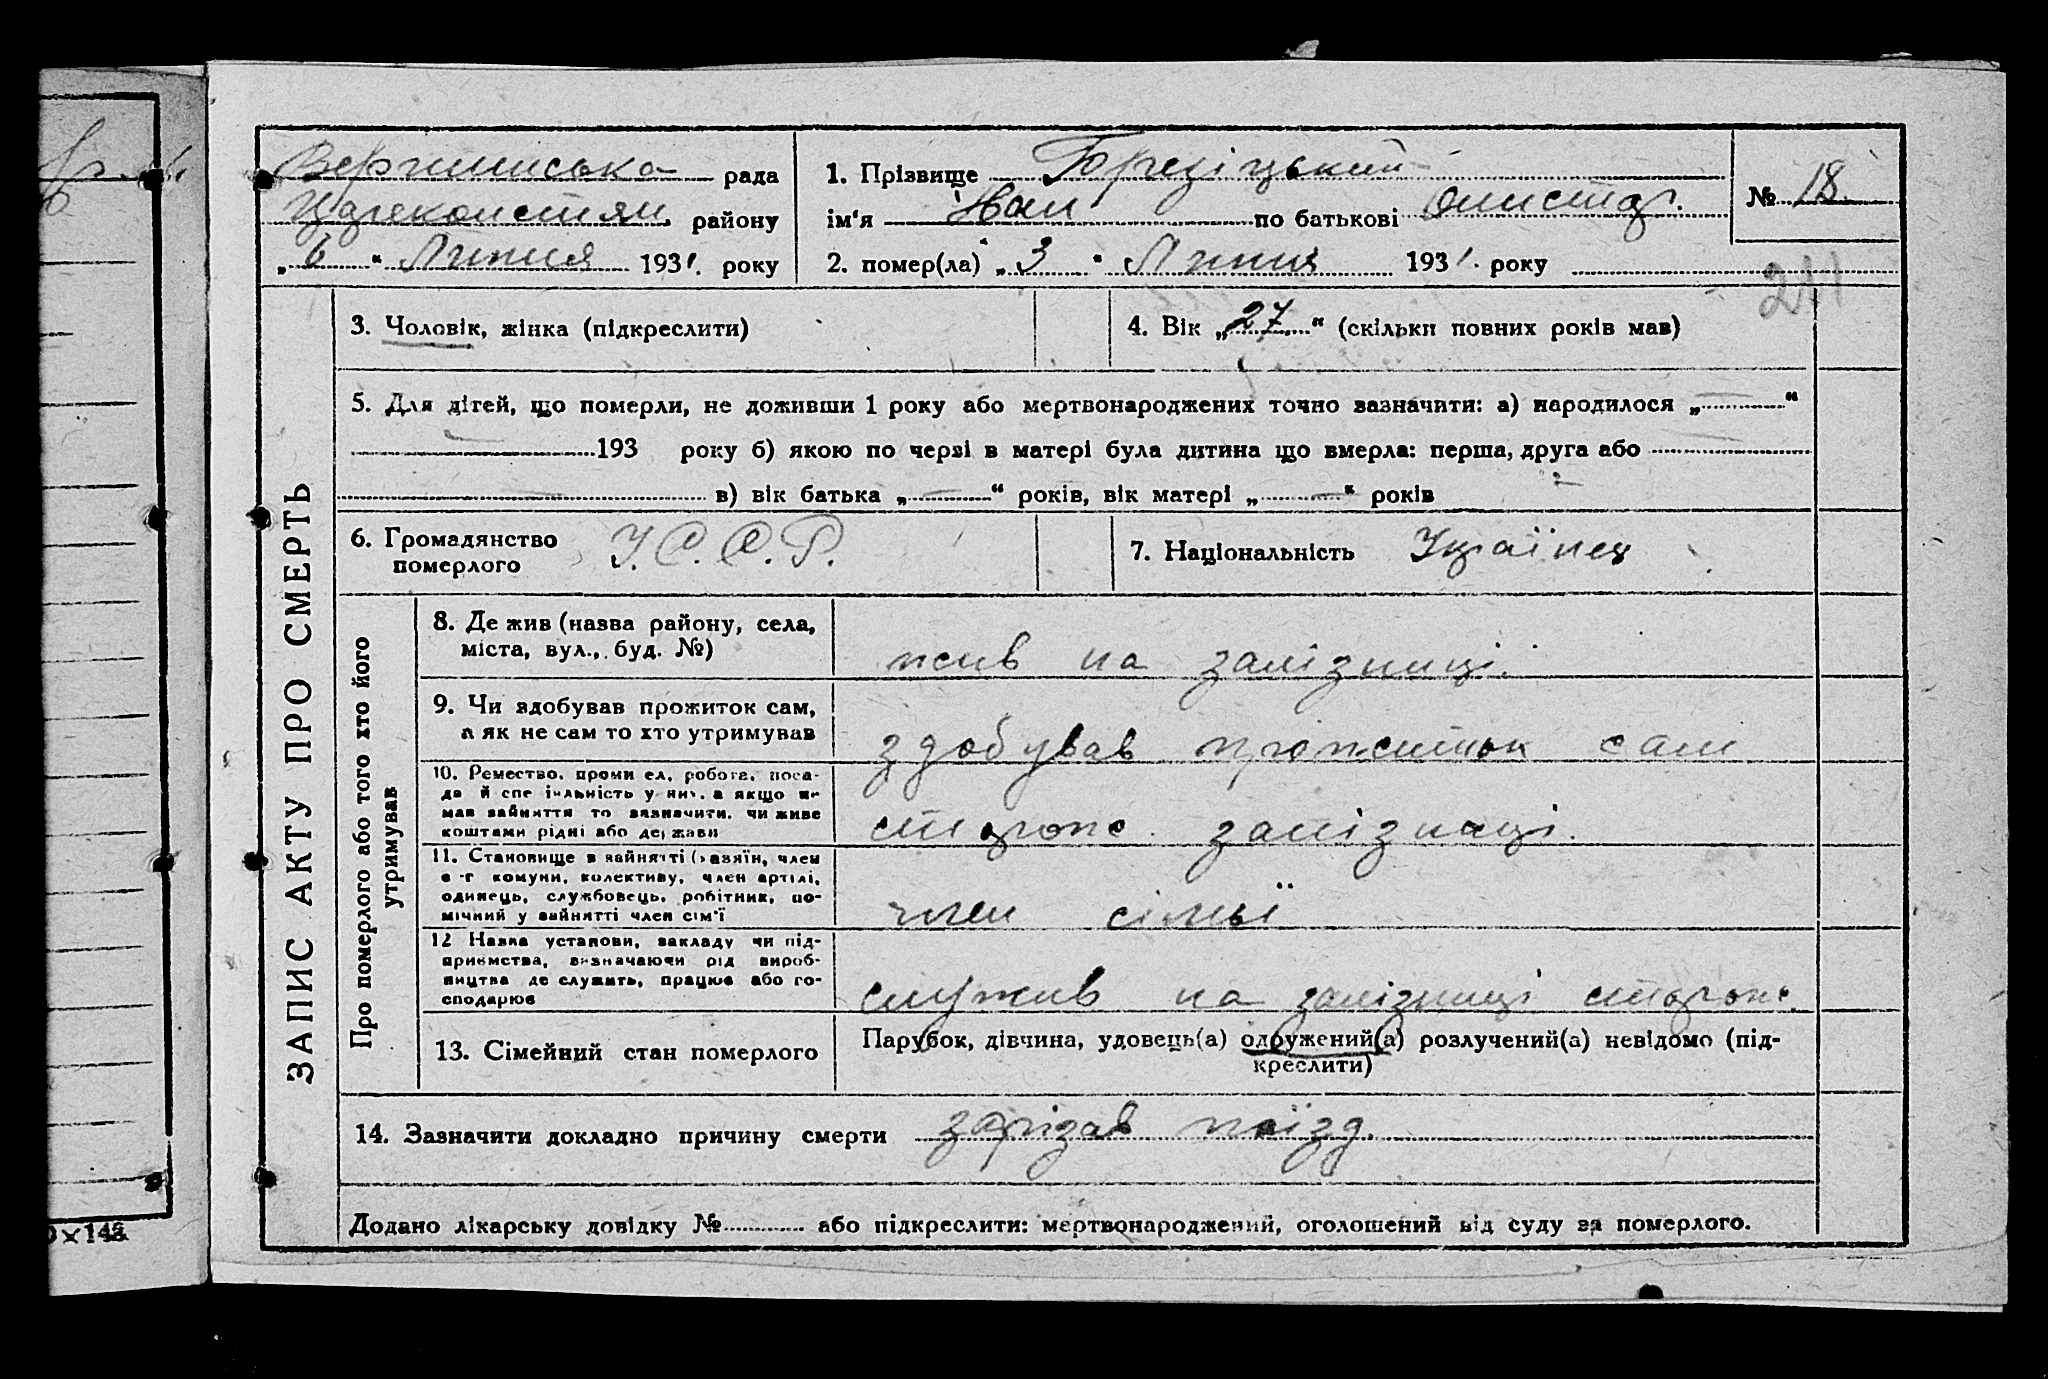 рада
району
„ 6 “ Липня 1931. року
1. Прізвище
ім'я Іван по батькові
2. помер(ла) „ 3 “ Липня 1931. року
№ 18.
211
ЗАПИС АКТУ ПРО СМЕРТЬ
3. Чоловік, жінка (підкреслити)
4. Вік „ 27 “ (скільки повних років мав)
5. Для дітей, що померли, не доживши 1 року або мертвонароджених точно зазначити: а) народилося „ — “
193 року б) якою по черзі в матері була дитина що вмерла: перша, друга або
в) вік батька „ — “ років, вік матері „ — “ років
6. Громадянство
померлого
У.С.С.Р.
7. Національність Українец
Про померлого або того хто його
утримував
8. Де жив (назва району, села,
міста, вул., буд. №)
жив на залізниці.
9. Чи здобував прожиток сам,
а як не сам то хто утримував
здобував прожиток сам
10. Ремество, проми ел, робота, поса-
да й спе іяльність у них, а якщо не
мав зайняття то зазначити, чи живе
коштами рідні або держави
сторож залізниці.
11. Становище в зайнятті (хазяїн, член
с-г комуни, колективу, член артілі,
одинець, службовець, робітник, по-
мічний у зайнятті член сім'ї
член сімьї
12 Назва установи, закладу чи під-
приємства, визначаючи рід вироб-
ництва де служить, працює або го-
сподарює
служив на залізниці сторож.
13. Сімейний стан померлого
Парубок, дівчина, удовець(а) одружений(а) розлучений(а) невідомо (під-
креслити)
14. Зазначити докладно причину смерти зарізав поїзд.
Додано лікарську довідку № або підкреслити: мертвонароджений, оголошений від суду за померлого.
×148